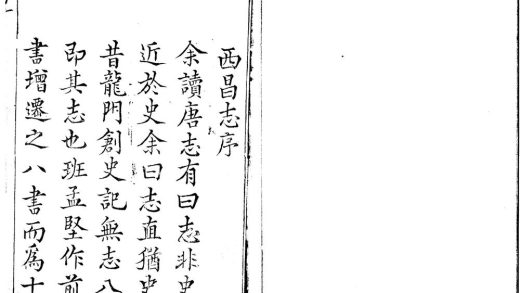 西昌志序
余讀唐志有曰志非史
近於史余曰志直猶史
昔龍門創史記無志八
即其志也班孟堅作前
書增遷之八書而為十